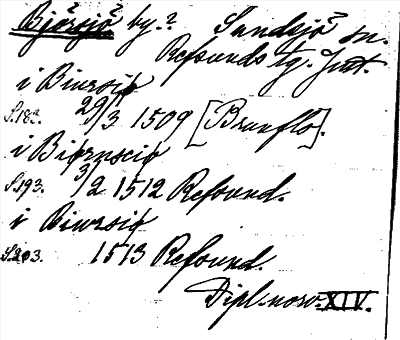 Björsjö by.? Sundsjö sn.
Refsunds tg. Jmt.
i Biursiø
S.183. 29/3 1509 [Brunflo].
i Biørnsciø
S.193. 3/2 1512 Refsund.
i Biursiø
S.203. 1513 Refsund.
Dipl. norv. XIV.